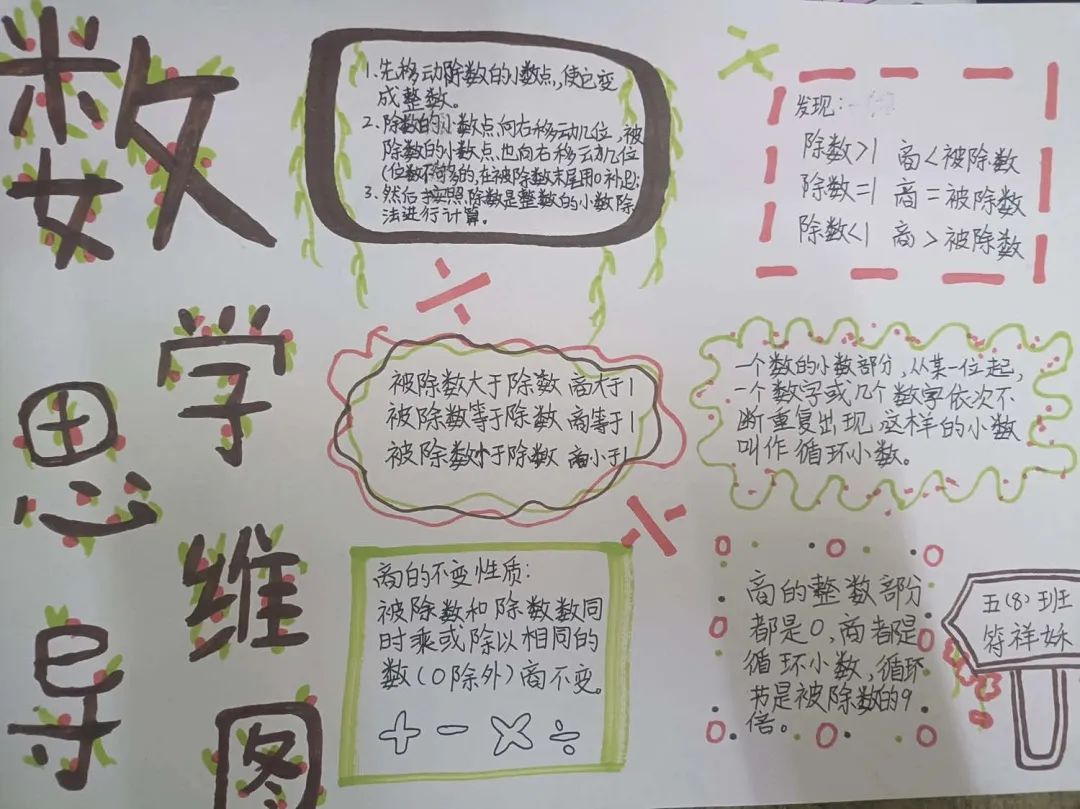 数学
思维
导图
1.先移动除数的小数点,使它变
成整数。
2.除数的小数点向右移动几位,被
除数的小数点也向右移动几位
(位数不够的,在被除数末尾用0补足;
3.然后按照除数是整数的小数除
法进行计算。
发现:
除数>1 商<被除数
除数=1 商=被除数
除数<1 商>被除数
被除数大于除数 商大于1
被除数等于除数 商等于1
被除数小于除数 商小于1
一个数的小数部分,从某一位起,
一个数字或几个数字依次不
断重复出现 这样的小数
叫作循环小数。
商的不变性质:
被除数和除数数同
时乘或除以相同的
数(0除外)商不变。
+ - × ÷
商的整数部分
都是0,商都是
循环小数,循环
节是被除数的9
倍。
五(8)班
符祥